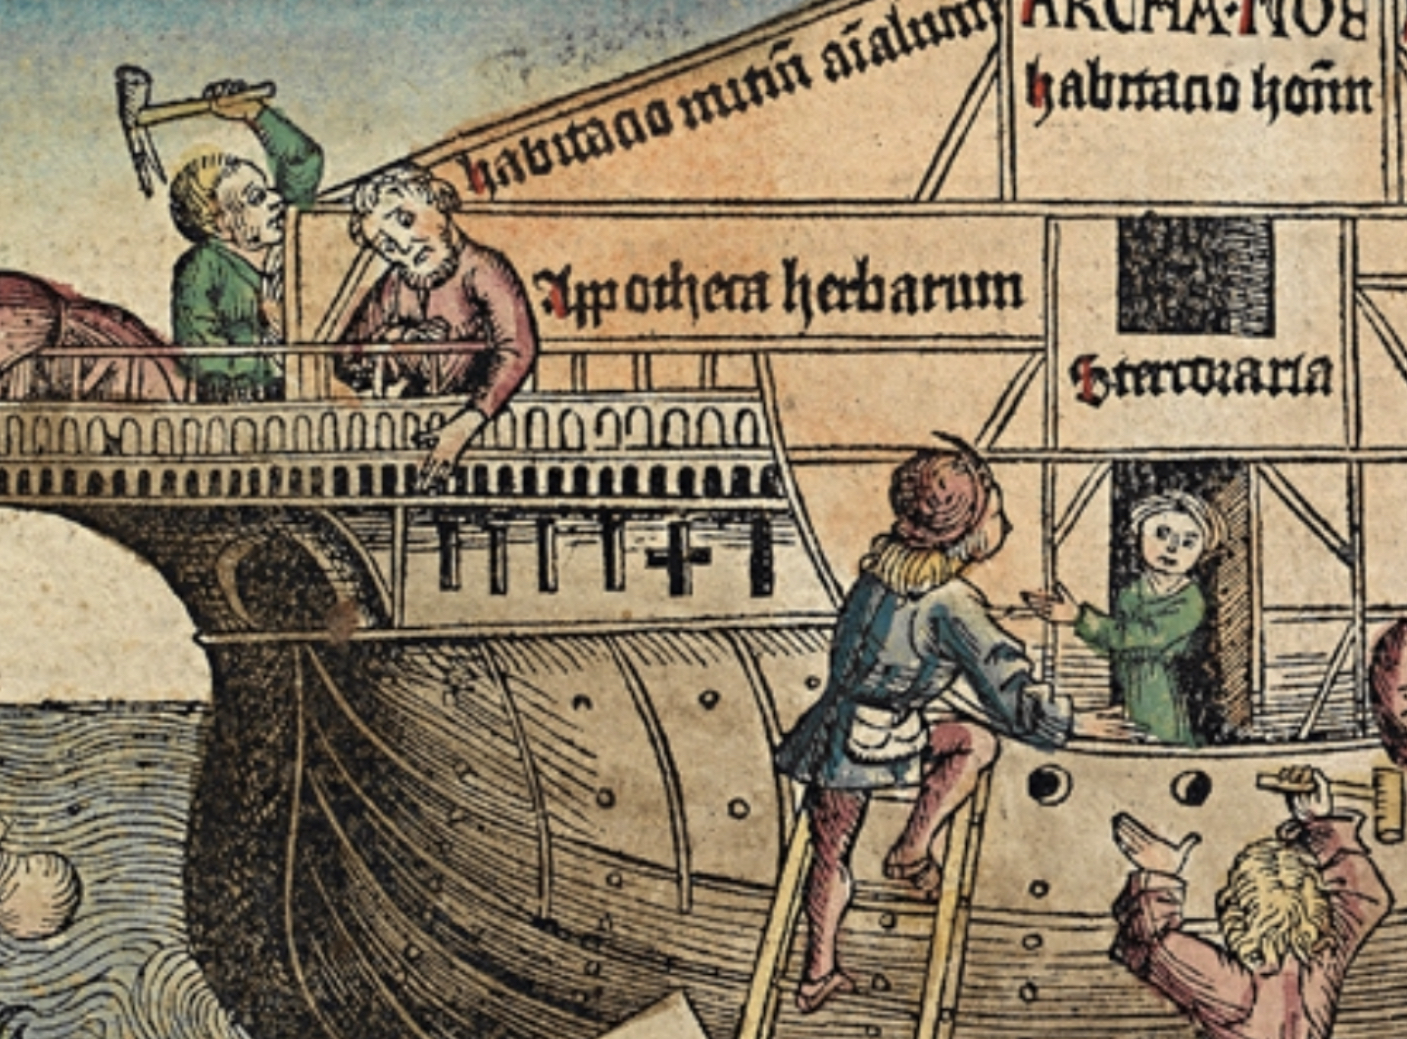 ARCHA·NOE
habitacio mitiū aīalium
habitacio hoīm
Appotheca herbarum
Stercoraria